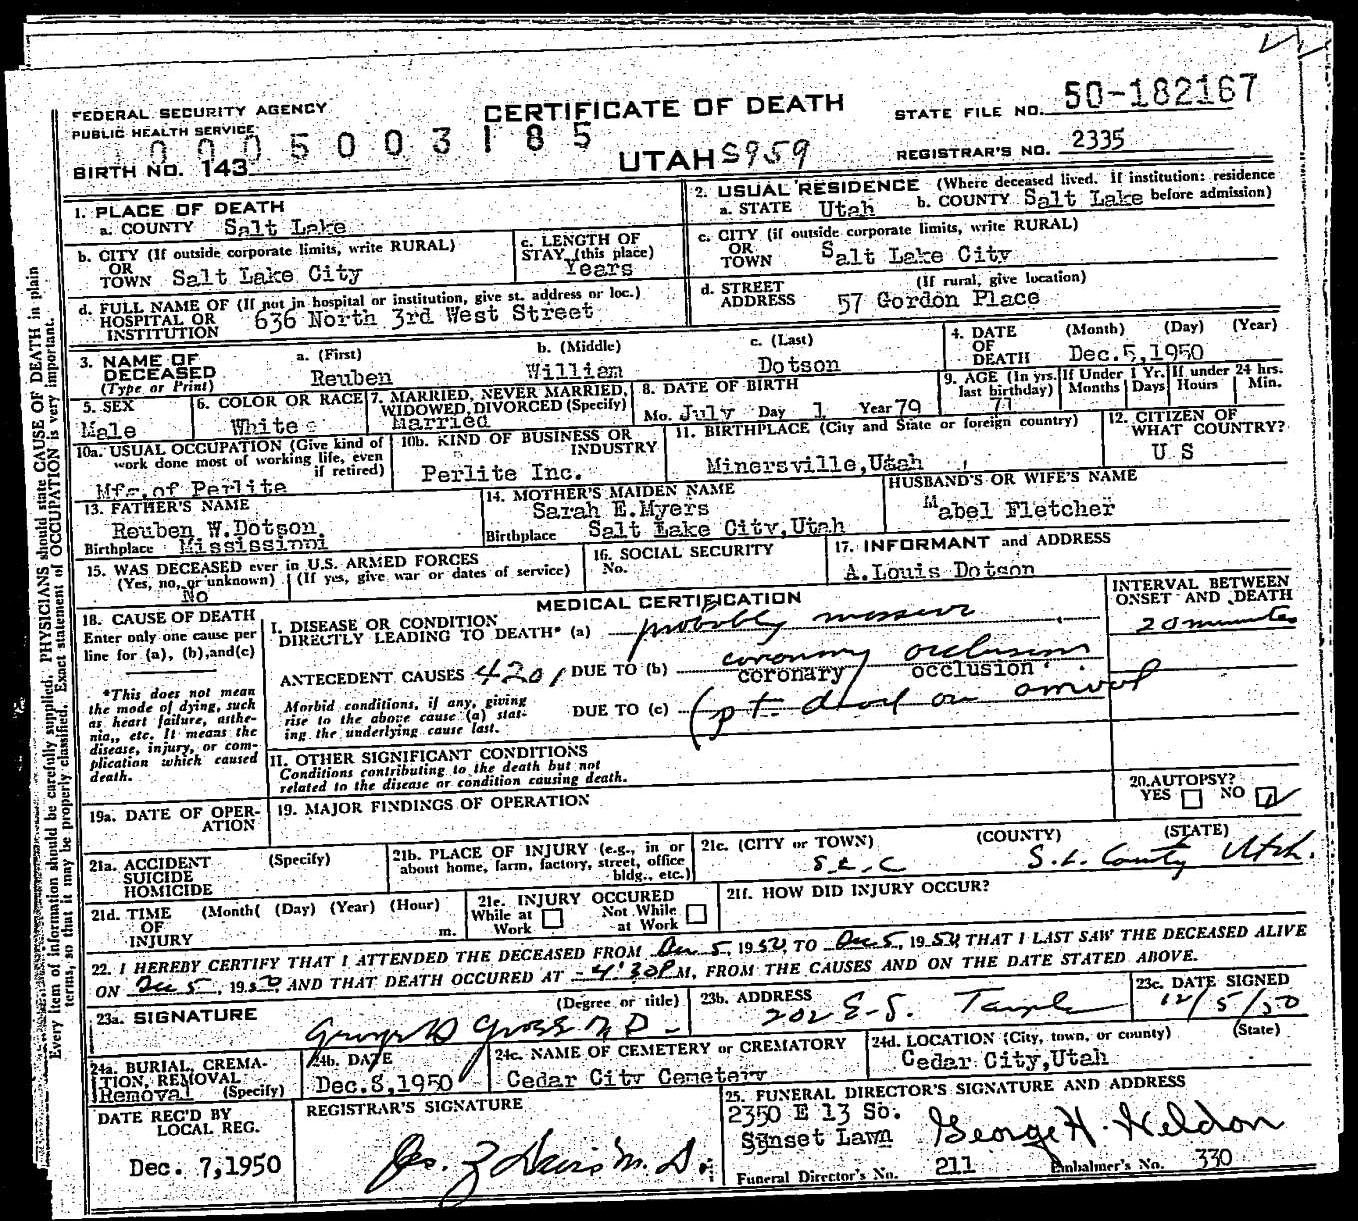 FEDERAL SECURITY AGENCY
PUBLIC HEALTH SERVICE
CERTIFICATE OF DEATH
STATE FILE NO. 50-182167
0005003185
BIRTH NO. 143
UTAH S959
REGISTRAR'S NO. 2335
1. PLACE OF DEATH
a. COUNTY Salt Lake
2. USUAL RESIDENCE (Where deceased lived. If institution: residence before admission)
a. STATE Utah b. COUNTY Salt Lake
b. CITY (If outside corporate limits, write RURAL)
OR
TOWN Salt Lake City
c. LENGTH OF
STAY (this place)
Years
c. CITY (if outside corporate limits, write RURAL)
OR
TOWN Salt Lake City
d. FULL NAME OF (If not in hospital or institution, give st. address or loc.)
HOSPITAL OR
INSTITUTION 636 North 3rd West Street
d. STREET
ADDRESS
(If rural, give location)
57 Gordon Place
3. NAME OF
DECEASED
(Type or Print)
a. (First)
Reuben
b. (Middle)
William
c. (Last)
Dotson
4. DATE
OF
DEATH
(Month) (Day) (Year)
Dec.5,1950
5. SEX
Male
6. COLOR OR RACE
White
7. MARRIED, NEVER MARRIED,
WIDOWED, DIVORCED (Specify)
Married
8. DATE OF BIRTH
Mo. July Day 1 Year 79
9. AGE (In yrs.
last birthday)
71
If Under 1 Yr.
Months Days
If under 24 hrs.
Hours Min.
10a. USUAL OCCUPATION (Give kind of
work done most of working life, even
if retired)
Mfg.of Perlite
10b. KIND OF BUSINESS OR
INDUSTRY
Perlite Inc.
11. BIRTHPLACE (City and State or foreign country)
Minersville,Utah
12. CITIZEN OF
WHAT COUNTRY?
U S
13. FATHER'S NAME
Reuben W.Dotson
Birthplace Mississippi
14. MOTHER'S MAIDEN NAME
Sarah E.Myers
Birthplace Salt Lake City,Utah
HUSBAND'S OR WIFE'S NAME
Mabel Fletcher
15. WAS DECEASED ever in U.S. ARMED FORCES
(Yes, no, or unknown) (If yes, give war or dates of service)
No
16. SOCIAL SECURITY
No.
17. INFORMANT and ADDRESS
A.Louis Dotson
MEDICAL CERTIFICATION
INTERVAL BETWEEN
ONSET AND DEATH
18. CAUSE OF DEATH
Enter only one cause per
line for (a), (b),and(c)
*This does not mean
the mode of dying, such
as heart failure, asthe-
nia,, etc. It means the
disease, injury, or com-
plication which caused
death.
I. DISEASE OR CONDITION
DIRECTLY LEADING TO DEATH* (a) probably massive
20 minutes
ANTECEDENT CAUSES 4201 DUE TO (b) coronary occlusion
coronary occlusion
Morbid conditions, if any, giving
rise to the above cause (a) stat-
ing the underlying cause last.
DUE TO (c) (pt. dead on arrival
II. OTHER SIGNIFICANT CONDITIONS
Conditions contributing to the death but not
related to the disease or condition causing death.
20. AUTOPSY?
YES NO
19a. DATE OF OPER-
ATION
19. MAJOR FINDINGS OF OPERATION
21a. ACCIDENT
SUICIDE
HOMICIDE
(Specify)
21b. PLACE OF INJURY (e.g., in or
about home, farm, factory, street, office
bldg., etc.)
21c. (CITY or TOWN) (COUNTY) (STATE)
S.L.C S.L. County Utah.
21d. TIME
OF
INJURY
(Month( (Day) (Year) (Hour)
m.
21e. INJURY OCCURED
While at
Work
Not While
at Work
21f. HOW DID INJURY OCCUR?
22. I HEREBY CERTIFY THAT I ATTENDED THE DECEASED FROM Dec 5, 1950, TO Dec 5, 1950, THAT I LAST SAW THE DECEASED ALIVE
ON Dec 5, 1950, AND THAT DEATH OCCURED AT 4:30 P M, FROM THE CAUSES AND ON THE DATE STATED ABOVE.
23a. SIGNATURE
(Degree or title)
George D Gross M D
23b. ADDRESS
202 E-S. Temple
23c. DATE SIGNED
12/5/50
24a. BURIAL, CREMA-
TION, REMOVAL
(Specify)
Removal
24b. DATE
Dec.8,1950
24c. NAME OF CEMETERY or CREMATORY
Cedar City Cemetery
24d. LOCATION (City, town, or county) (State)
Cedar City,Utah
DATE REC'D BY
LOCAL REG.
Dec. 7,1950
REGISTRAR'S SIGNATURE
Jos. Z Davis M. D.
25. FUNERAL DIRECTOR'S SIGNATURE AND ADDRESS
2350 E 13 So.
Sunset Lawn
George H. Weldon
Funeral Director's No. 211 Embalmer's No. 330
Every item of information should be carefully supplied. PHYSICIANS should state CAUSE OF DEATH in plain
terms, so that it may be properly classified. Exact statement of OCCUPATION is very important.